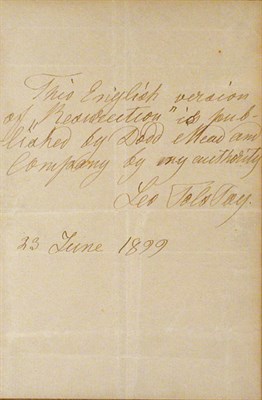 This English version
of „Resurrection" is pub-
lished by Dodd Mead and
Company by my authority
Leo Tolstoy.
23 June 1899